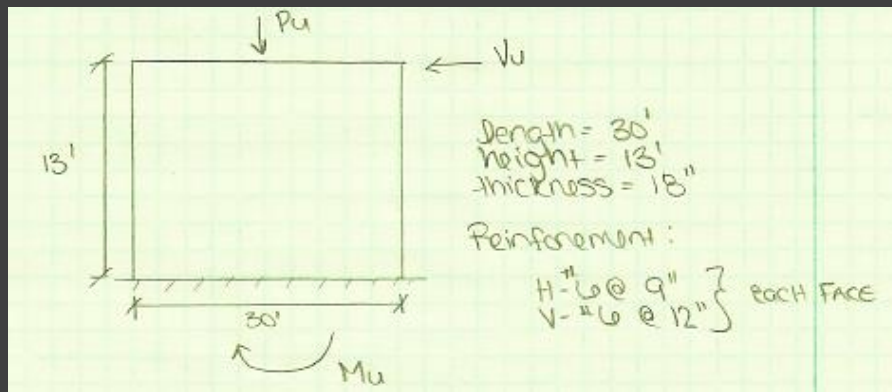 Pu
Vu
13'
Length = 30'
height = 13'
thickness = 18"
Reinforement:
H-#6 @ 9"
V-#6 @ 12"
EACH FACE
30'
Mu